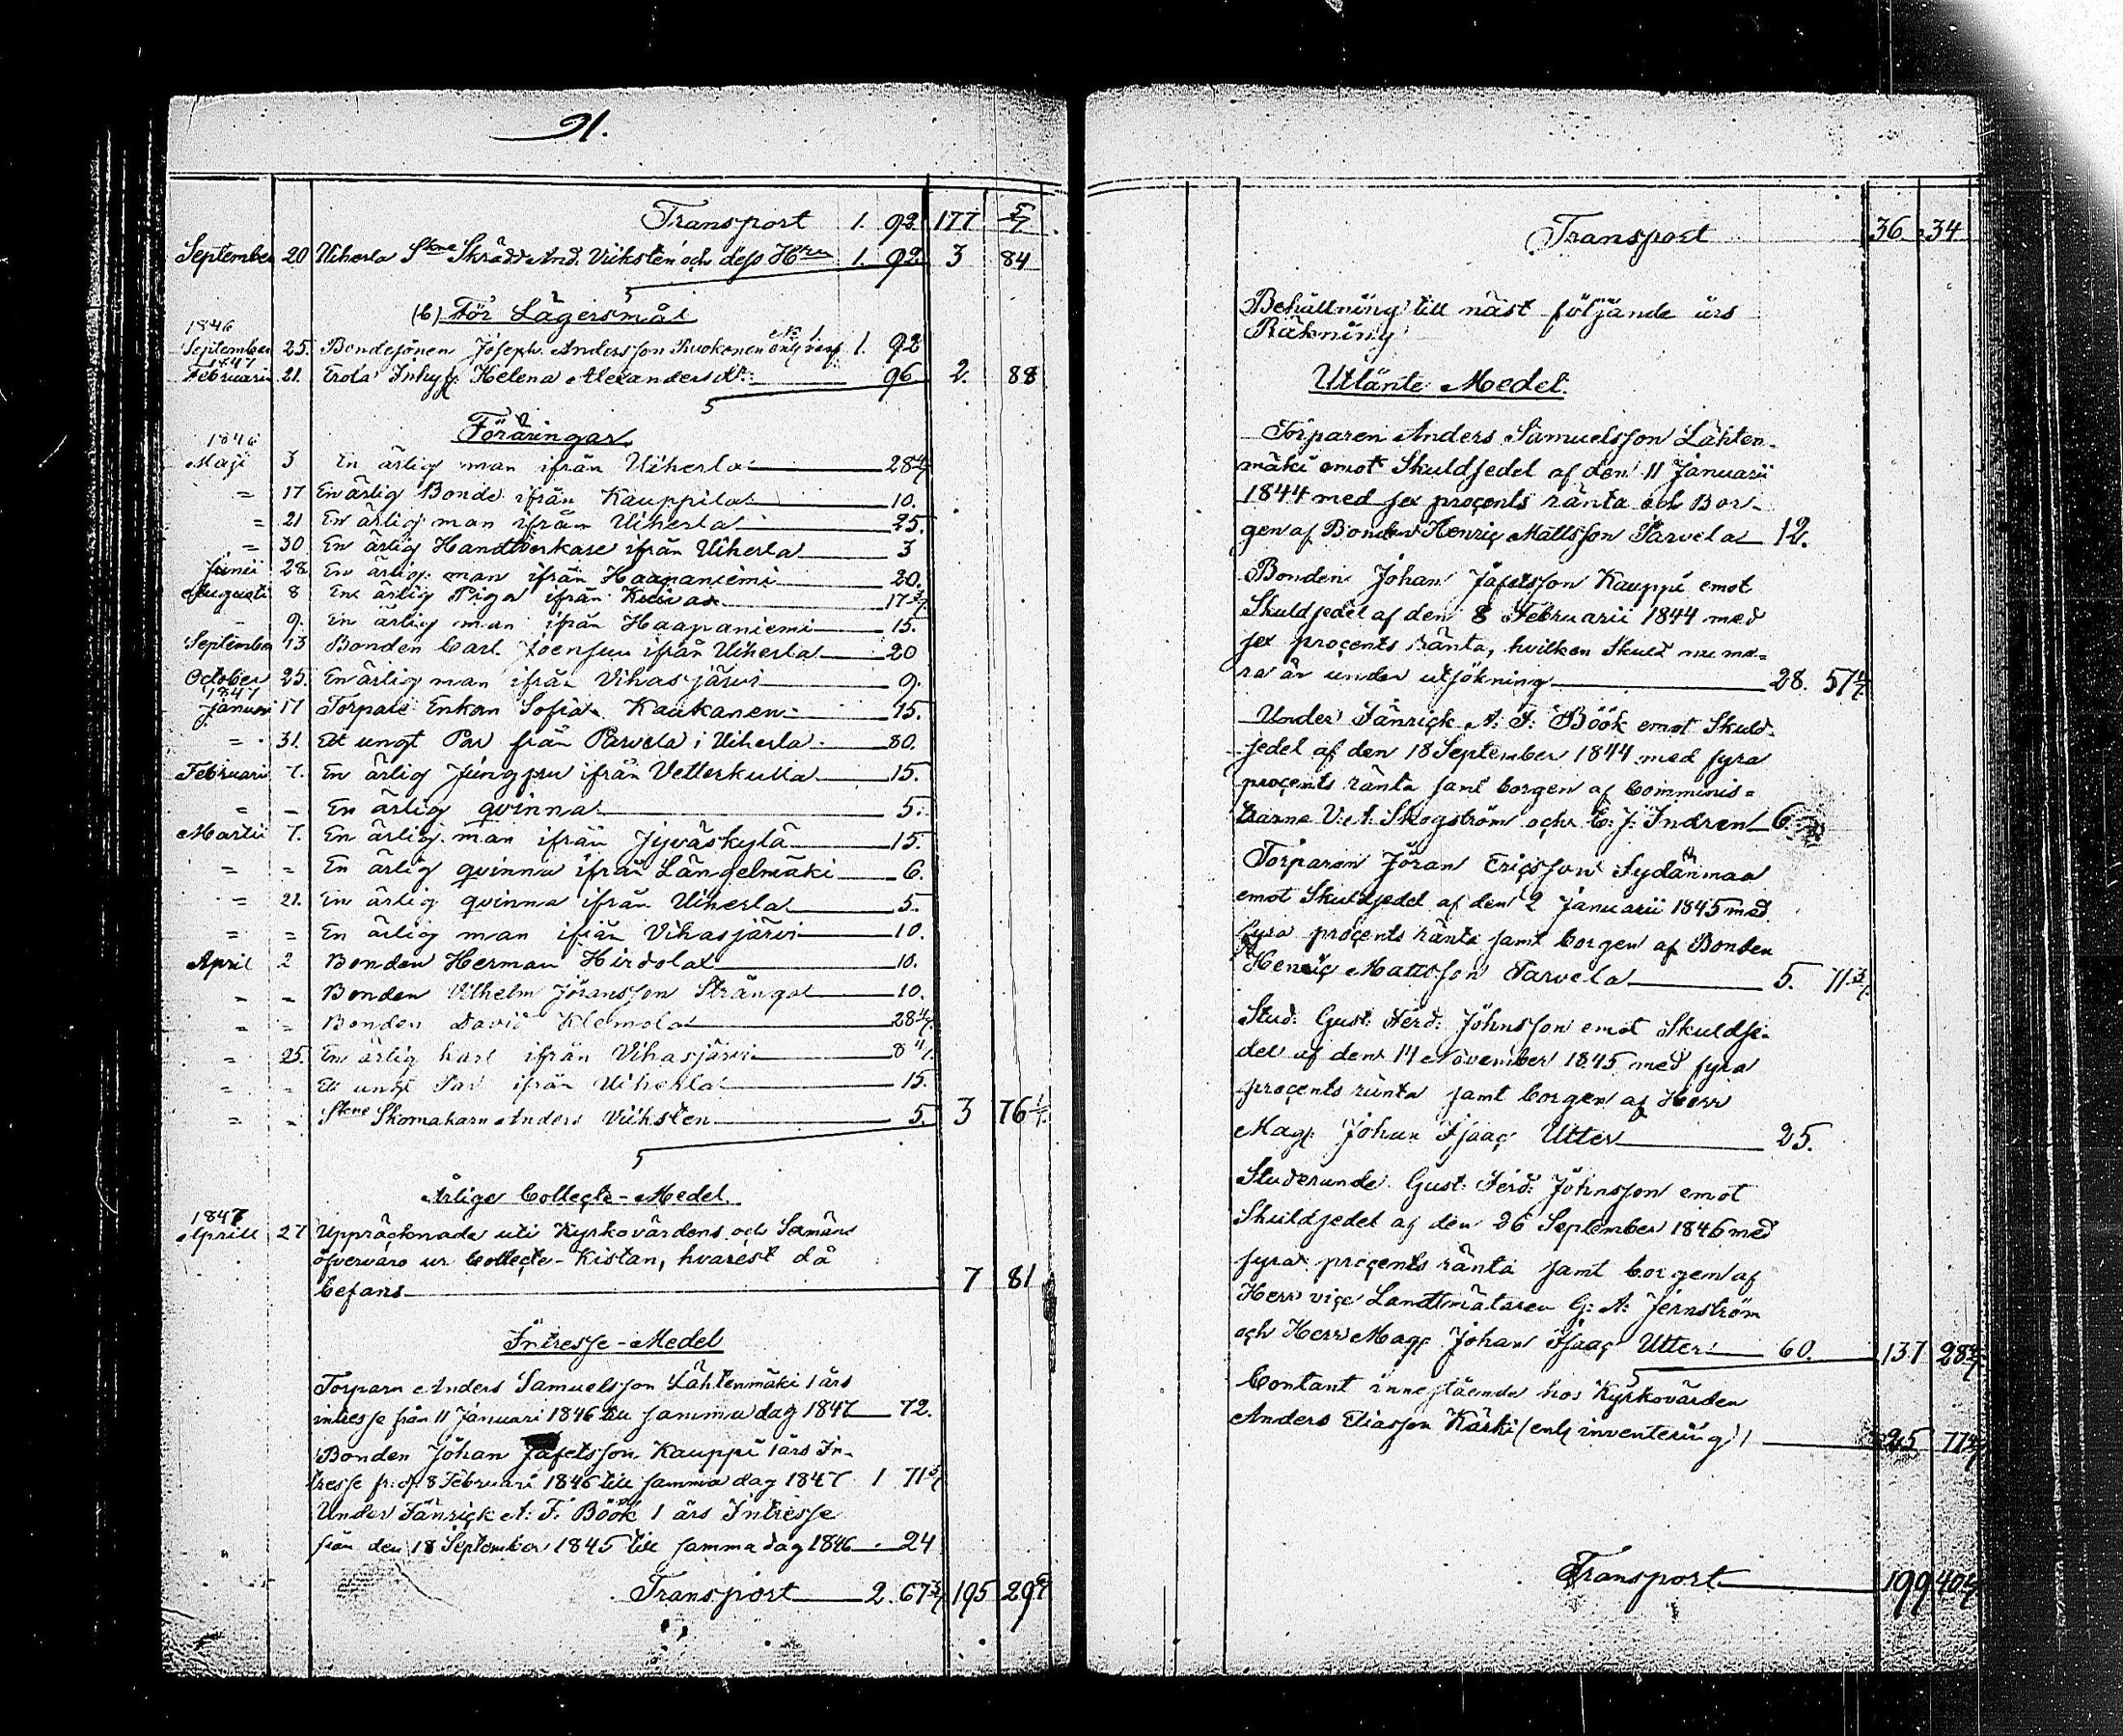 91.
Transport 1. 92. 177 5/7
September 20 Uiherla Skne Skrädd And. Viksten och dess Hru 1. 92. 3 84
(b) För Lägersmål
1846
September 25. Bondesonen Joseph Andersson Ruokonen enl. verif. No 1 1. 92
1847
Februarii 21. Erola Inhys: Helena Alexandersdr: 96 2. 88
Föräringar
1846
Maji 3 En ärlig man ifrån Uiherla 28 4/7
= 17 En ärlig Bonde ifrån Kauppila 10.
= 21 En ärlig man ifrån Uiherla 25.
= 30 En ärlig Handtverkare ifrån Uiherla 3
Junii 28 En ärlig man ifrån Haapaniemi 20.
Augusti 8 En ärlig Piga ifrån 17 1/7
9. En ärlig man ifrån Haapaniemi 15.
September 13 Bonden Carl Joensuu ifrån Uiherla 20
October 25. En ärlig man ifrån Vihasjärvi 9.
1847
Januari 17 Torpare Enkan Sofia Kaukanen 15.
= 31. Ett ungt Par från Parvela i Uiherla 80.
Februari 7. En ärlig Jungfru ifrån Vetterkulla 15.
= = En ärlig qvinna 5.
Martii 7. En ärlig man ifrån Jyväskylä 15.
= = En ärlig qvinna ifrån Längelmäki 6.
= 21. En ärlig qvinna ifrån Uiherla 5.
= = En ärlig man ifrån Vihasjärvi 10.
April 2 Bonden Herman Hirdola 10.
= = Bonden Vilhelm Jöransson Stränga 10.
= = Bonden David Klemola 28 4/7.
= 25. En ärlig karl ifrån Vihasjärvi 8 4/7.
= = Ett ungt Par ifrån Uiherla 15.
= = Skne Skomakarn Anders Viihsten 5. 3 76 1/7.
Årliga Collecte-Medel.
1847
Aprill 27 Uppräcknade uti Kyrkovärdens och Sexmäns
öfvervaro ur Collecte-Kistan, hvarest då
befans 7 81
Intresse-Medel
Torparn Anders Samuelsson Lähtenmäki 1 års
intresse från 11 Januari 1846 till samma dag 1847 72.
Bonden Johan Jafetsson Kauppi 1 års In-
tresse fr: d: 8 Februari 1846 till samma dag 1847 1 71 3/7
Under Fänrick A: F. Böök 1 års Intresse
från den 18 September 1845 till samma dag 1846 24
Transport 2. 67 3/7 195 29 6/7
Transport 36. 34
Behållning till näst följande års
Räkning
Utlänte Medel.
Torparen Anders Samuelsson Lähten-
mäki emot Skuldsedel af den 11 Januarii
1844 med sex procents ränta och Bor-
gen af Bonden Henric Mattsson Parvela 12.
Bonden Johan Jafetsson Kauppi emot
Skuldsedel af den 8 Februarii 1844 med
sex procents ränta, hvilken Skuld nu me-
ra är under utsökning 28. 57 1/7
Under Fänrick A: F: Böök emot Skuld-
sedel af den 18 September 1844 med fyra
procents ränta samt borgen af Comminis-
trarne V: A: Skogström och C: J: Indren 6.
Torparen Jöran Ericsson Sydänmaa
emot Skuldsedel af den 2 Januarii 1845 med
fyra procents ränta samt borgen af Bonden
Henric Mattsson Parvela 5. 71 3/7.
Stud: Gust: Ferd: Johnsson emot Skuldse-
del af den 14 November 1845 med fyra
procents ränta samt borgen af Herr
Mag: Johan Isaac Utter 25.
Studerande Gust: Ferd: Johnsson emot
Skuldsedel af den 26 September 1846 med
fyra procents ränta samt borgen af
Herr vice Landtmätaren G: A: Jernström
och Herr Mag: Johan Isaac Utter 60. 137 28 4/7
Contant innestående hos Kyrkovärden
Anders Eliasson Kärki (enl. inventering) 25 77 5/7
Transport 199 40 2/7